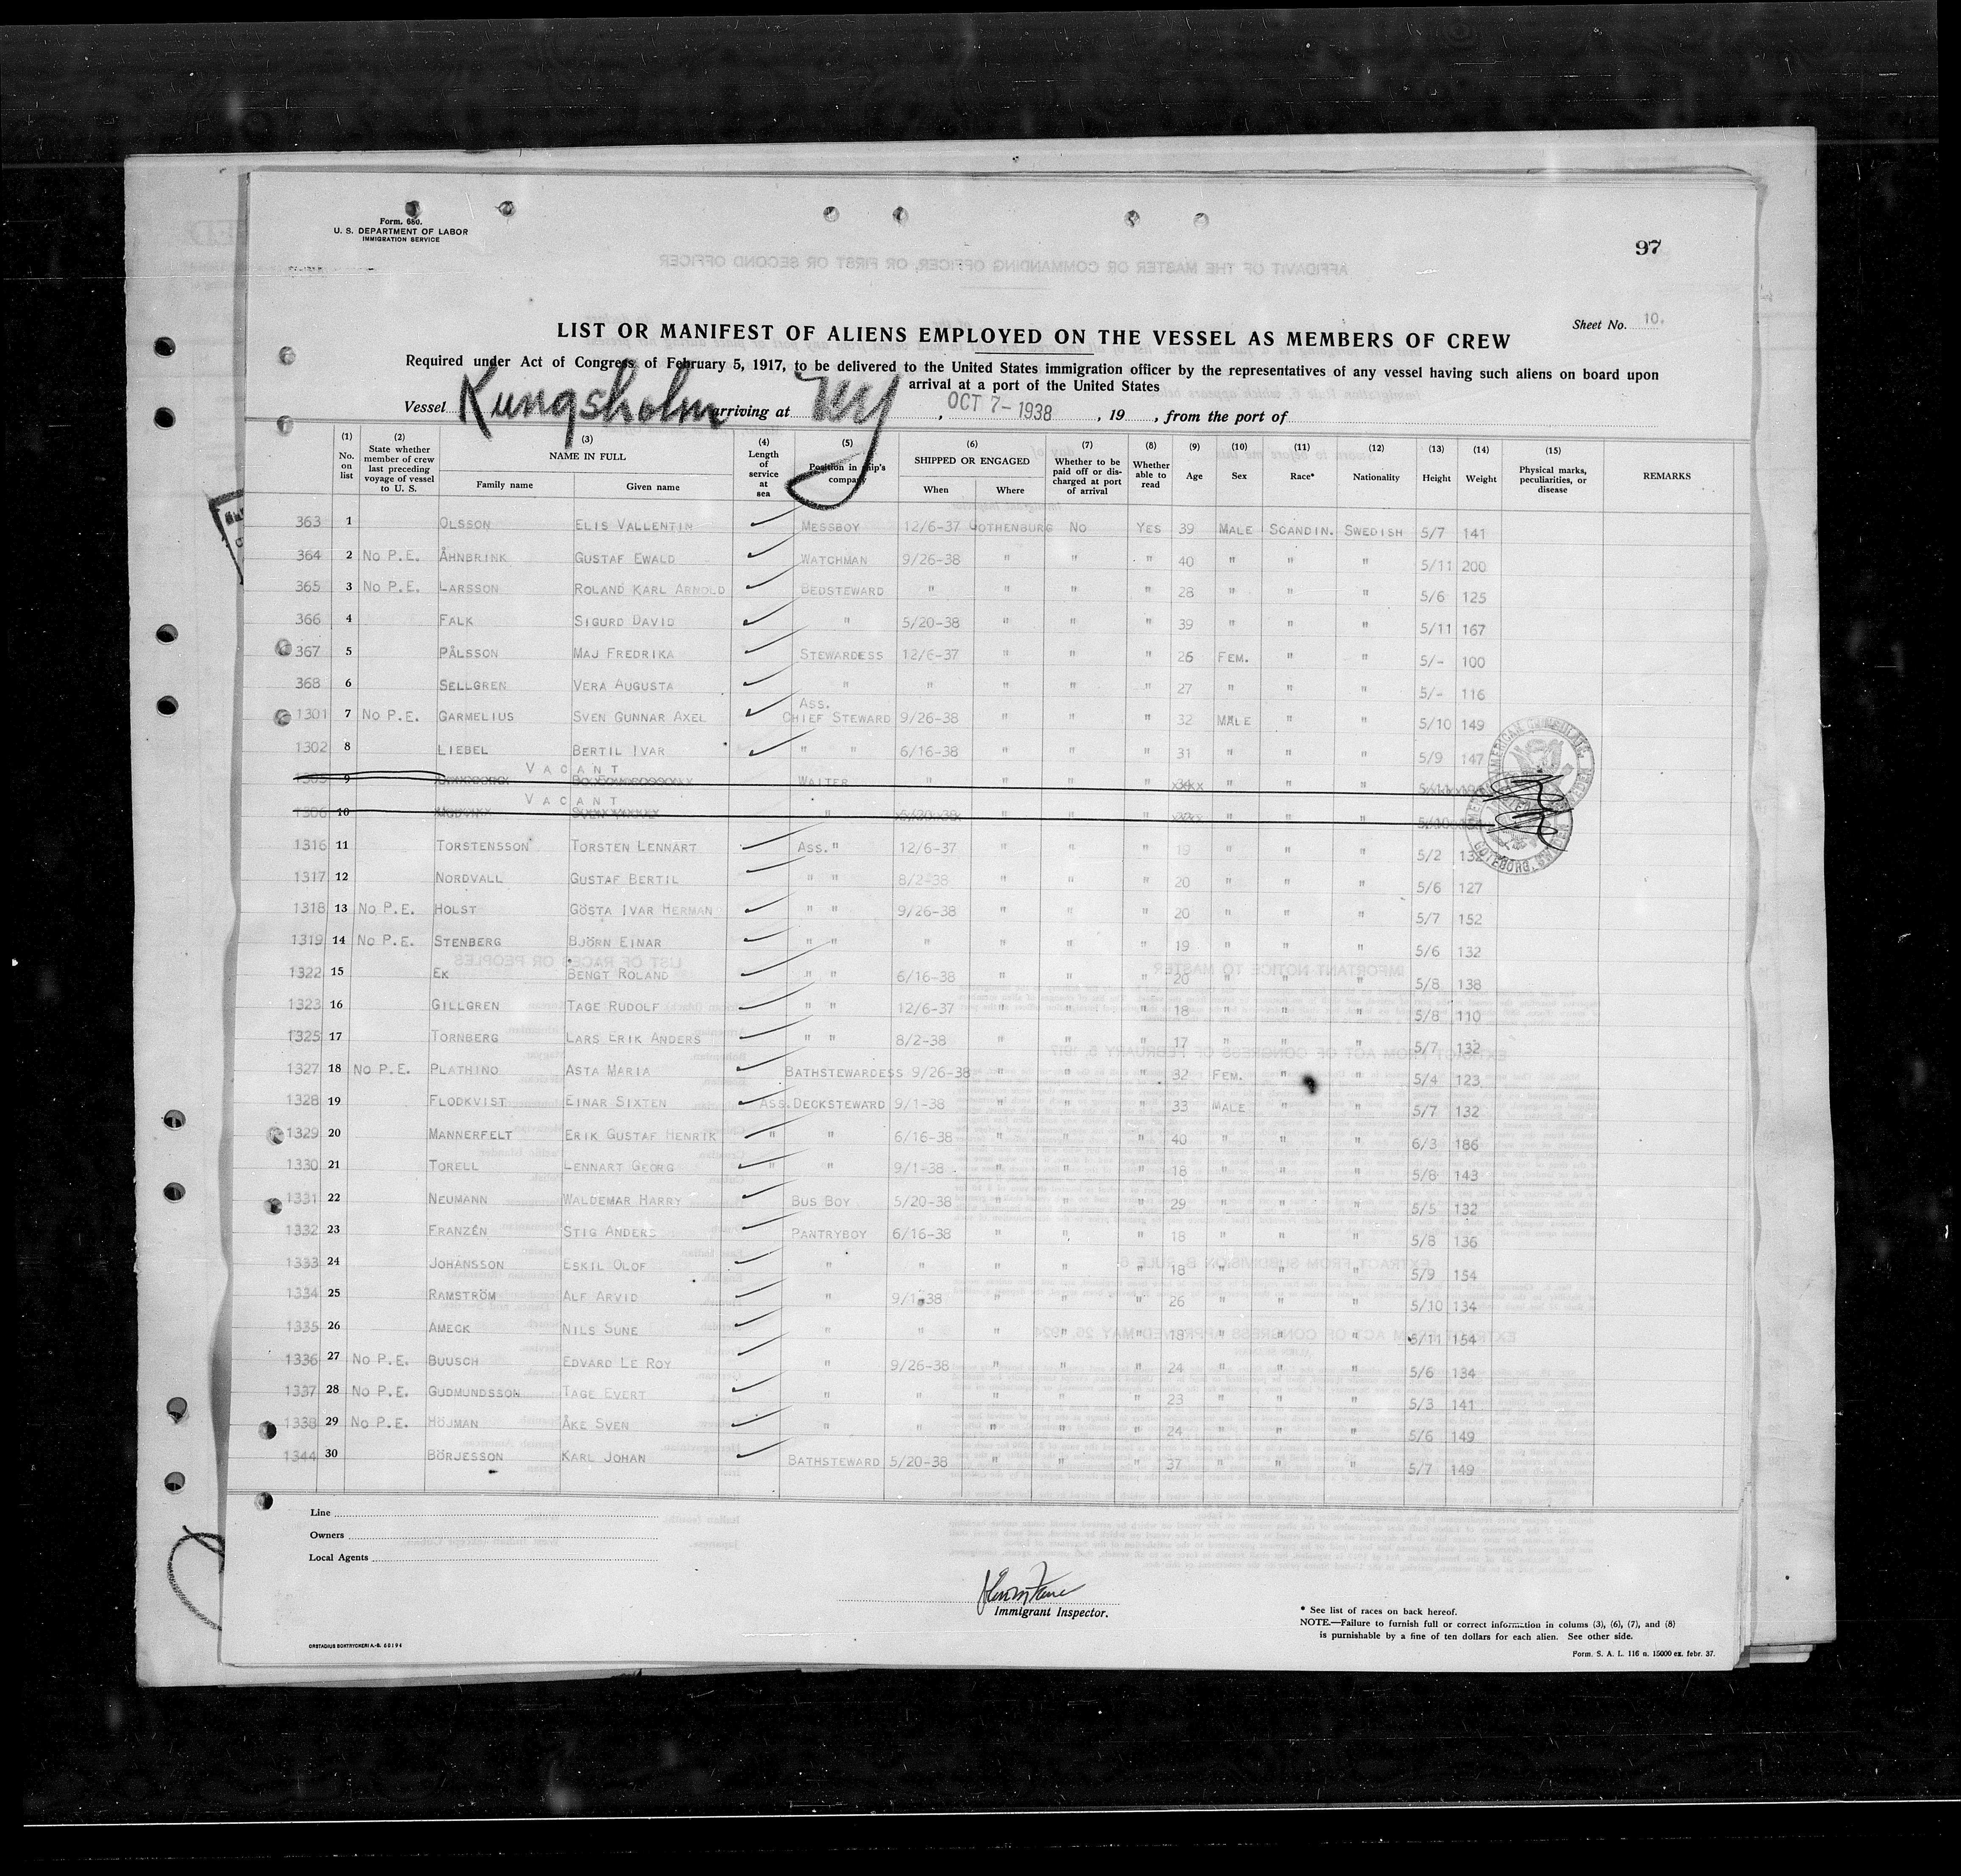 Form. 680.
U. S. DEPARTMENT OF LABOR
IMMIGRATION SERVICE
97
Sheet No. 10.
LIST OR MANIFEST OF ALIENS EMPLOYED ON THE VESSEL AS MEMBERS OF CREW
Required under Act of Congress of February 5, 1917, to be delivered to the United States immigration officer by the representatives of any vessel having such aliens on board upon
arrival at a port of the United States
Vessel Kungsholm arriving at NY, OCT 7-1938, 19, from the port of
(1) No. on list (2) State whether member of crew last preceding voyage of vessel to U. S. (3) NAME IN FULL Family name Given name (4) Length of service at sea (5) Position in ship's company (6) SHIPPED OR ENGAGED When Where (7) Whether to be paid off or discharged at port of arrival (8) Whether able to read (9) Age (10) Sex (11) Race* (12) Nationality (13) Height (14) Weight (15) Physical marks, peculiarities, or disease REMARKS
363 1 OLSSON ELIS VALLENTIN MESSBOY 12/6-37 GOTHENBURG NO YES 39 MALE SCANDIN. SWEDISH 5/7 141
364 2 NO P.E. ÅHNBRINK GUSTAF EWALD WATCHMAN 9/26-38 " " " 40 " " " 5/11 200
365 3 NO P.E. LARSSON ROLAND KARL ARNOLD BEDSTEWARD " " " " 28 " " " 5/6 125
366 4 FALK SIGURD DAVID " 5/20-38 " " " 39 " " " 5/11 167
367 5 PÅLSSON MAJ FREDRIKA STEWARDESS 12/6-37 " " " 26 FEM. " " 5/- 100
368 6 SELLGREN VERA AUGUSTA " " " " " 27 " " " 5/- 116
1301 7 NO P.E. GARMELIUS SVEN GUNNAR AXEL ASS. CHIEF STEWARD 9/26-38 " " " 32 MALE " " 5/10 149
1302 8 LIEBEL BERTIL IVAR " " 6/16-38 " " " 31 " " " 5/9 147
1305 9 VACANT WAITER " " " " " " "
1306 10 VACANT " " " " " " "
1316 11 TORSTENSSON TORSTEN LENNART ASS. " 12/6-37 " " " 19 " " " 5/2 132
1317 12 NORDVALL GUSTAF BERTIL " " 8/2-38 " " " 20 " " " 5/6 127
1318 13 NO P.E. HOLST GÖSTA IVAR HERMAN " " 9/26-38 " " " 20 " " " 5/7 152
1319 14 NO P.E. STENBERG BJÖRN EINAR " " " " " " 19 " " " 5/6 132
1322 15 EK BENGT ROLAND " " 6/16-38 " " " 20 " " " 5/8 138
1323 16 GILLGREN TAGE RUDOLF " " 12/6-37 " " " 18 " " " 5/8 110
1325 17 TORNBERG LARS ERIK ANDERS " " 8/2-38 " " " 17 " " " 5/7 132
1327 18 NO P.E. PLATHINO ASTA MARIA BATHSTEWARDESS 9/26-38 " " " 32 FEM. " " 5/4 123
1328 19 FLODKVIST EINAR SIXTEN ASS. DECKSTEWARD 9/1-38 " " " 33 MALE " " 5/7 132
1329 20 MANNERFELT ERIK GUSTAF HENRIK " " 6/16-38 " " " 40 " " " 6/3 186
1330 21 TORELL LENNART GEORG " " 9/1-38 " " " 18 " " " 5/8 143
1331 22 NEUMANN WALDEMAR HARRY BUS BOY 5/20-38 " " " 29 " " " 5/5 132
1332 23 FRANZÉN STIG ANDERS PANTRYBOY 6/16-38 " " " 18 " " " 5/8 136
1333 24 JOHANSSON ESKIL OLOF " " " " " 18 " " " 5/9 154
1334 25 RAMSTRÖM ALF ARVID " 9/1-38 " " " 26 " " " 5/10 134
1335 26 AMECK NILS SUNE " " " " " 18 " " " 5/11 154
1336 27 NO P.E. BUUSCH EDVARD LE ROY " 9/26-38 " " " 24 " " " 5/6 134
1337 28 NO P.E. GUDMUNDSSON TAGE EVERT " " " " " 23 " " " 5/3 141
1338 29 NO P.E. HÖJMAN ÅKE SVEN " " " " " 24 " " " 5/6 149
1344 30 BÖRJESSON KARL JOHAN BATHSTEWARD 5/20-38 " " " 37 " " " 5/7 149
Line
Owners
Local Agents
Immigrant Inspector.
* See list of races on back hereof.
NOTE.—Failure to furnish full or correct information in colums (3), (6), (7), and (8)
is purnishable by a fine of ten dollars for each alien. See other side.
ORSTADIUS BOKTRYCKERI A.-B. 60194
Form. S. A. L. 116 n. 15000 ex. febr. 37.